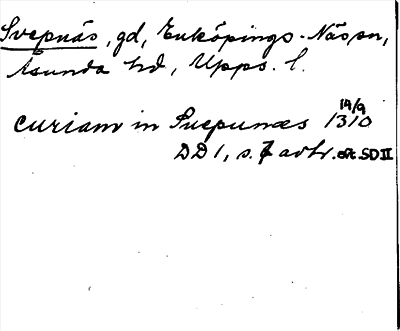 Svepnäs, gd, Enköpings-Näs sn,
Åsunda hd, Upps. l.
14/9
curiam in Suepunæs 1310
DD 1, s. 7 avtr. eft. SD II